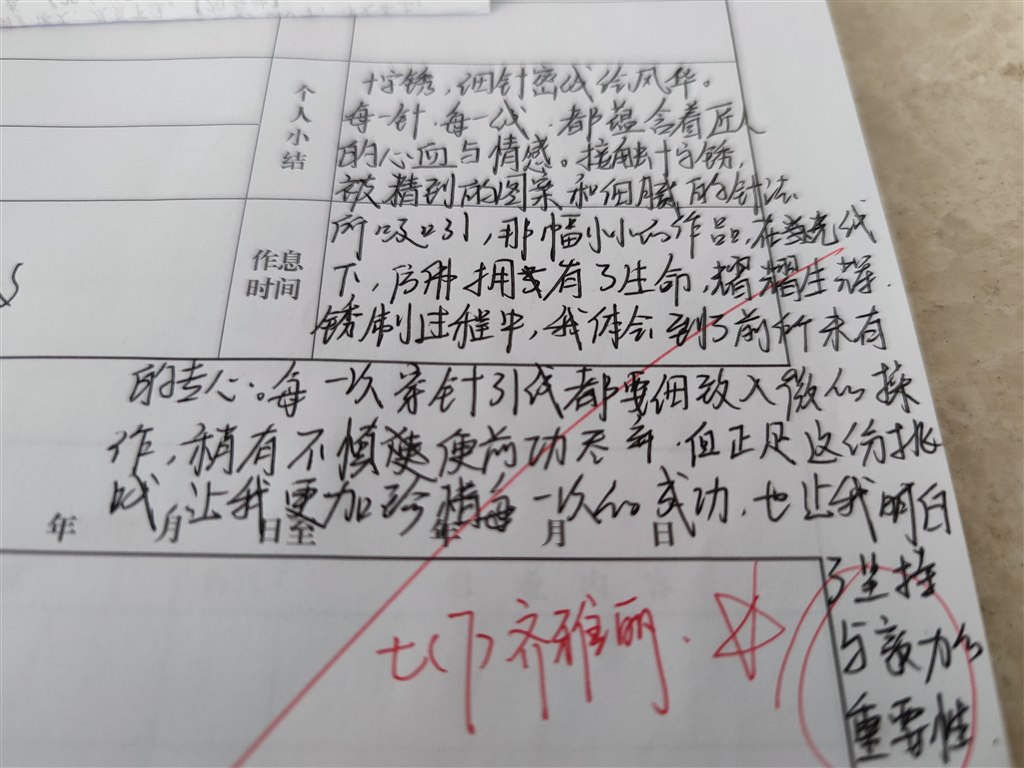 个人小结
十字绣，细针密线绘风华。
每一针，每一线，都蕴含着匠人
的心血与情感。接触十字锈，
被精到的图案和细腻的针法
所吸引，那幅小小的作品，在光线
作息时间
下，仿佛拥有了生命，耀耀生辉.
锈制过程中，我体会到了前所未有
的专心。每一次穿针引线都要细致入微的操
作，稍有不慎便前功尽弃.但正是这份挑
战，让我更加珍惜每一次的成功，也让我明白
年 月 日至 年 月 日
了坚持
与毅力的
重要性
七(7)齐雅丽.